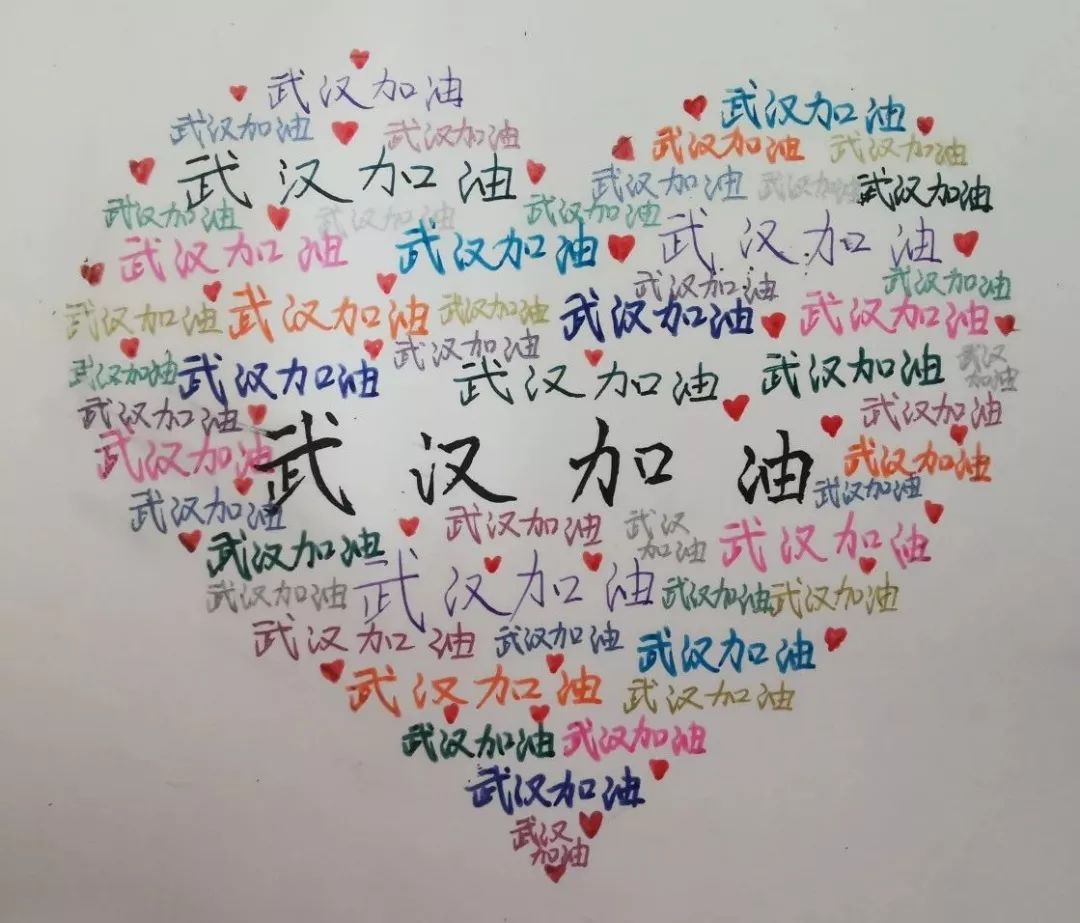 武汉加油
武汉加油
武汉加油
武汉加油
武汉加油
武汉加油
武汉加油
武汉加油
武汉加油
武汉加油
武汉加油
武汉加油
武汉加油
武汉加油
武汉加油
武汉加油
武汉加油
武汉加油
武汉加油
武汉加油
武汉加油
武汉加油
武汉加油
武汉加油
武汉加油
武汉加油
武汉加油
武汉加油
武汉加油
武汉加油
武汉
加油
武汉加油
武汉加油
武汉加油
武汉加油
武汉加油
武汉加油
武汉加油
武汉加油
武汉
加油
武汉加油
武汉加油
武汉加油
武汉加油
武汉加油
武汉加油
武汉加油
武汉加油
武汉加油
武汉加油
武汉加油
武汉加油
武汉加油
武汉加油
武汉
加油